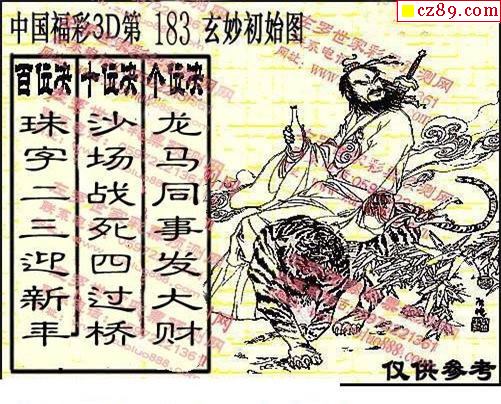 cz89.com
中国福彩3D第 183 玄妙初始图
百位决 十位决 个位决
珠字二三迎新年
沙场战死四过桥
龙马同事发大财
仅供参考